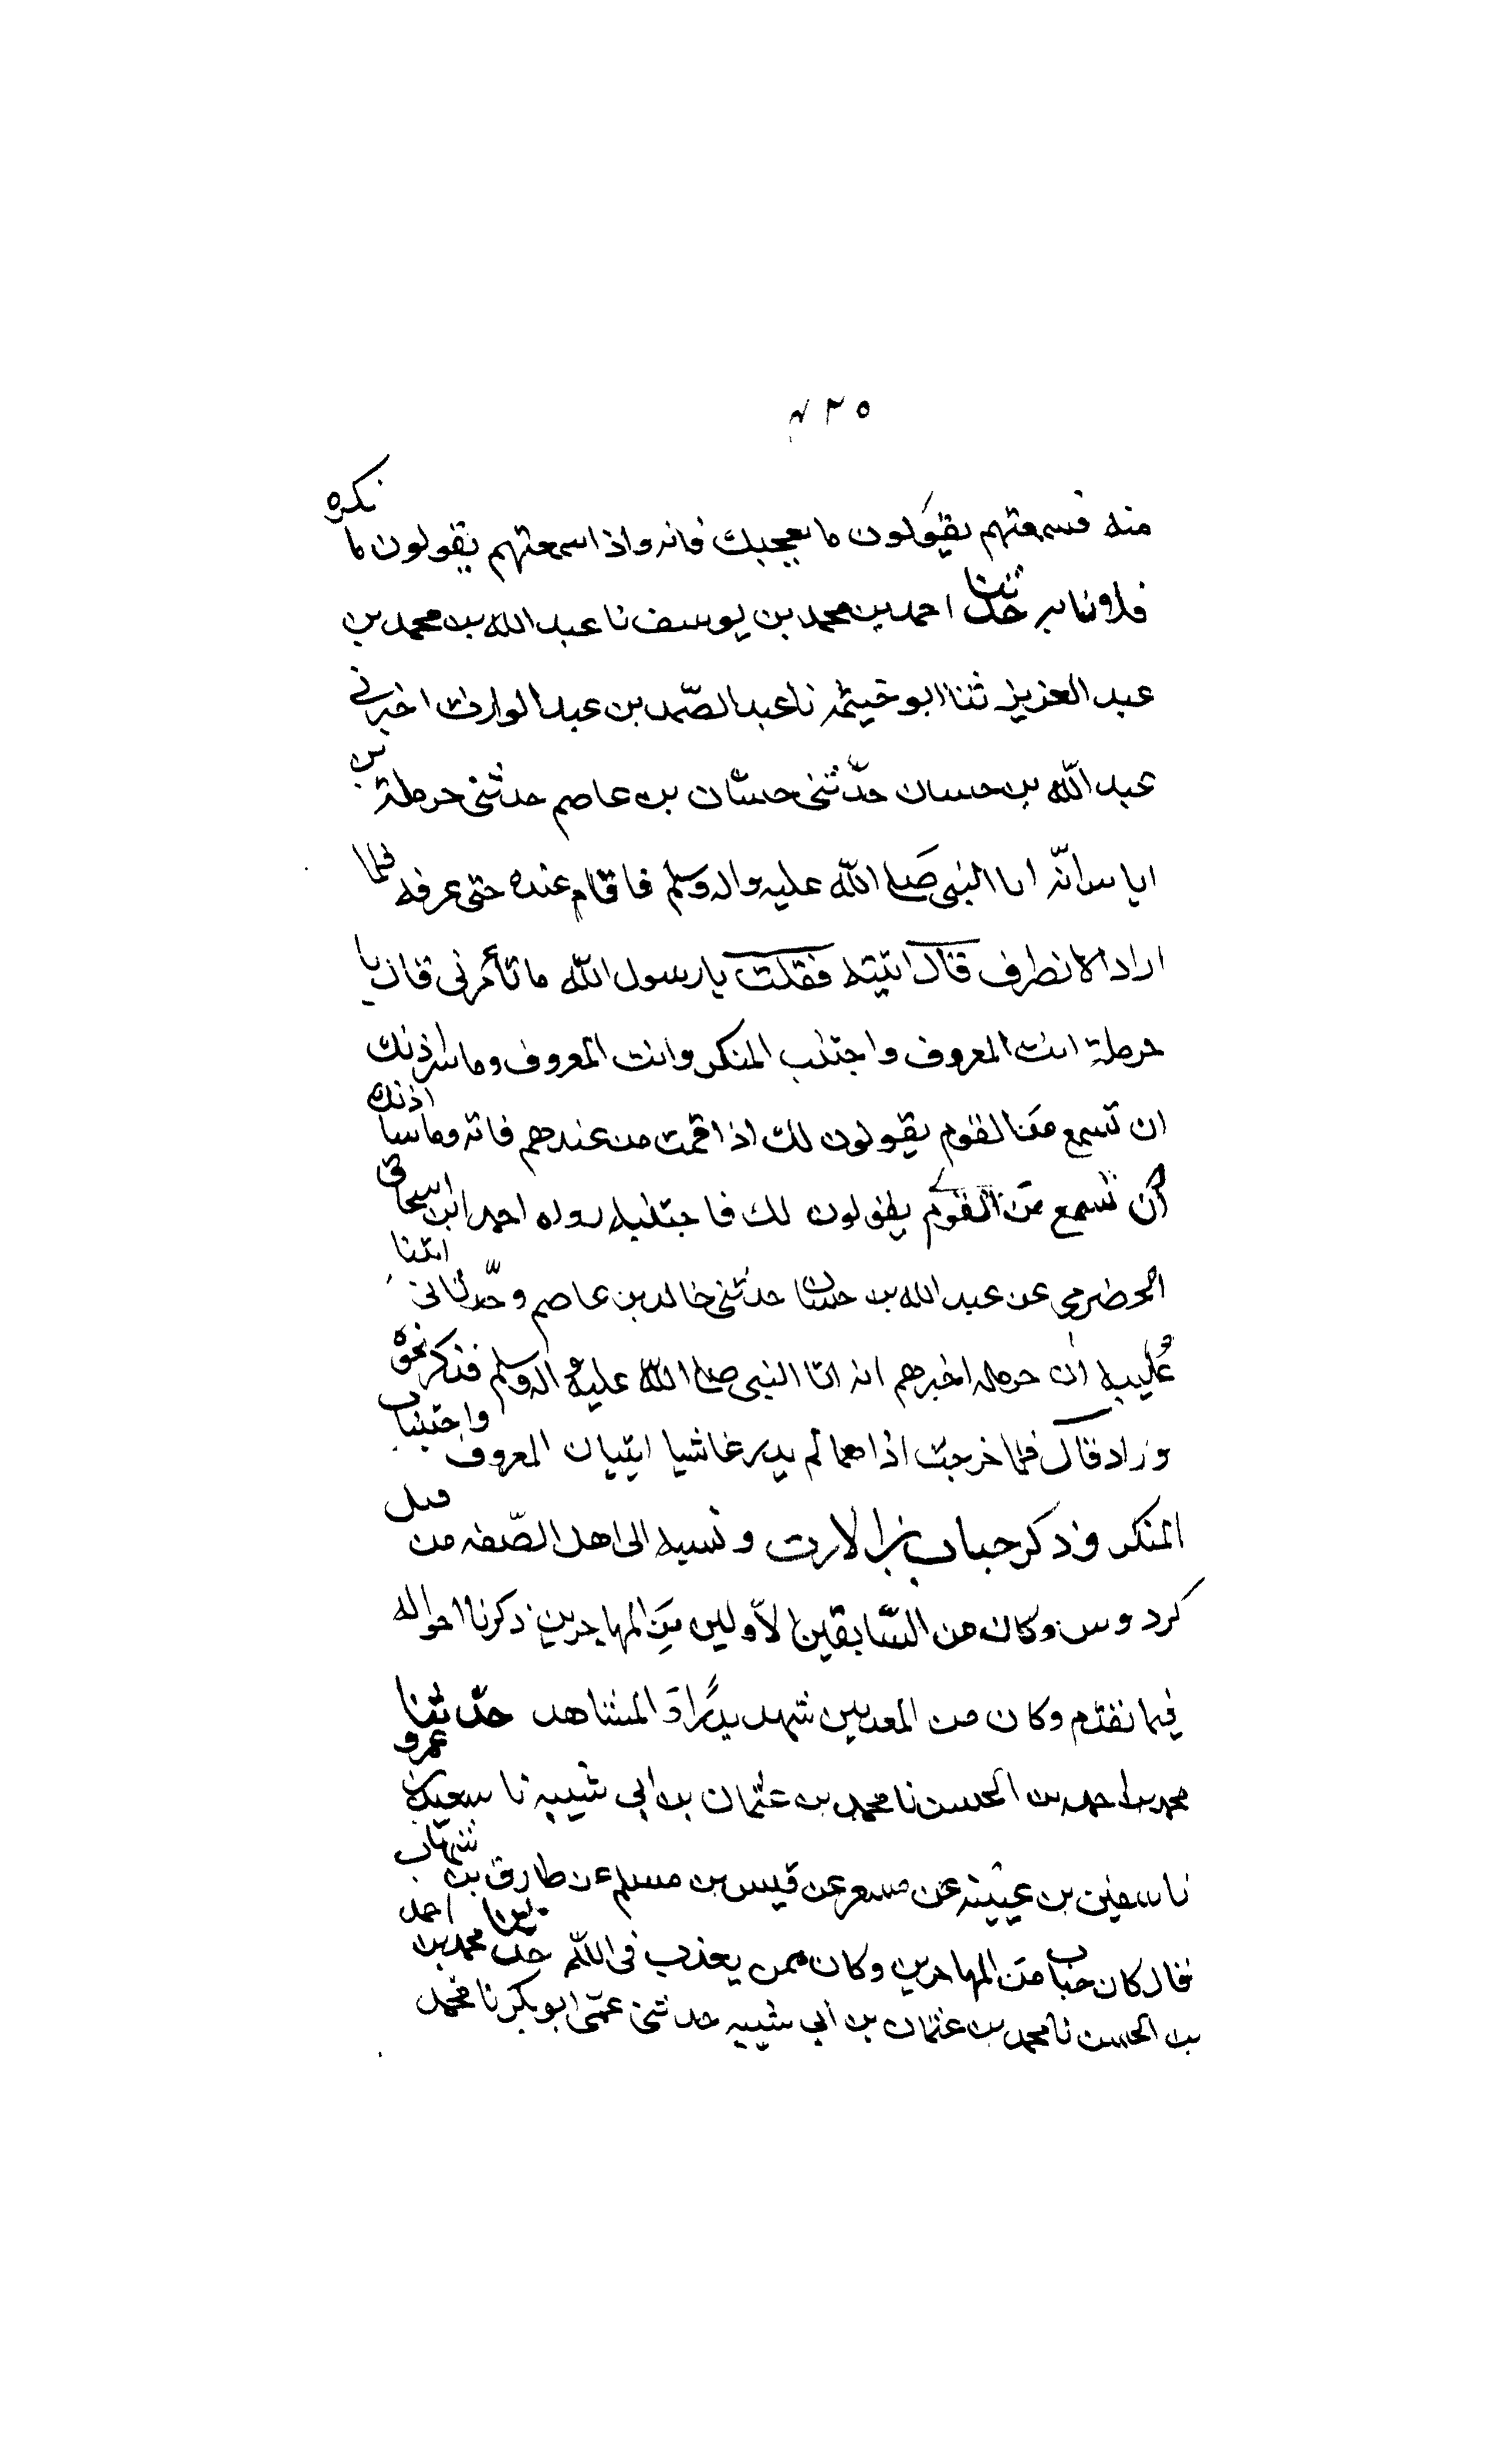 ٢٣٥
منه فسمعتهم يقولون ما يعجبك فاته واذا سمعتهم يقولون ما نكره
حدثنا احمد بن محمد بن يوسف نا عبد الله بن محمد بن
عبد العزيز ثنا ابو خيثمه نا عبد الصّمد بن عبد الوارث اخبرنى
عبد اللّه بن حسان حدّثنى حسّان بن عاصم حدثنى حرملة بن
اياس انّه اتا النبى صلى اللّه عليه واله وسلم فاقام عنده حتى عرفه فلما
اراد الانطرف قال اتيته فقلت يا رسول اللّه ما تأمرنى قال يا
حرملة ائت المعروف واجتنب المنكر وائت المعروف وما سر اذنك
ان تسمع من القوم يقولون لك اذا قمت من عندهم فاته وما سا اذنك
أن تسمع من القوم يقولون لك فاجتنبه رواه احمد ابن اسحاق
الحضرمى عن عبد الله بن حسان حدثنى خالد بن عاصم وحدّثتانى ابنتا
عُليبه ان حرمله اخبرهم انه اتا النبى صلى اللّه عليه واله وسلم فذكر نحوه
وزاد قال فلما خرجت اذا هما لم يدعا شيا اتيان المعروف واجتناب
المنكر وذكر خباب بن الارت ونسبه الى اهل الصّفه من قبل
كردوس وكان من السّابقين الأولين مِن المهاجرين ذكرنا احواله
فيما تقدم وكان من المعذبين شهد بدرًا وَ المشاهد حدّثنا
محمد بن احمد بن الحسن نا محمد بن عثمان بن ابى شيبه نا سعيد بن عمرو
نا سفين بن عيينه عن مسعر عن قيس بن مسلم عن طارق بن شهاب
قال كان خباب من المهاجرين وكان ممن يعذب فى اللّه حدثنا محمد بن احمد
بن الحسن نا محمد بن عثمان بن ابى شيبه حدثنى عمّى ابو بكر نا محمد